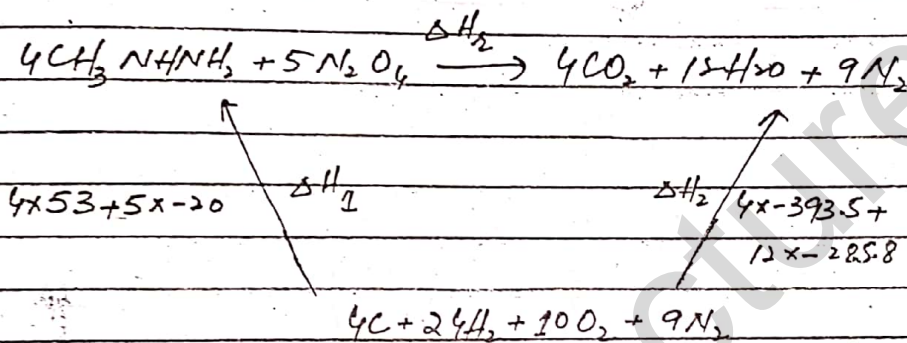 ΔHr
4CH3 NHNH2 + 5N2O4 ⟶ 4CO2 + 12H2O + 9N2
4×53+5×-20 ΔH1 ΔH2 4×-393.5+
12×-285.8
4C + 24H2 + 10O2 + 9N2